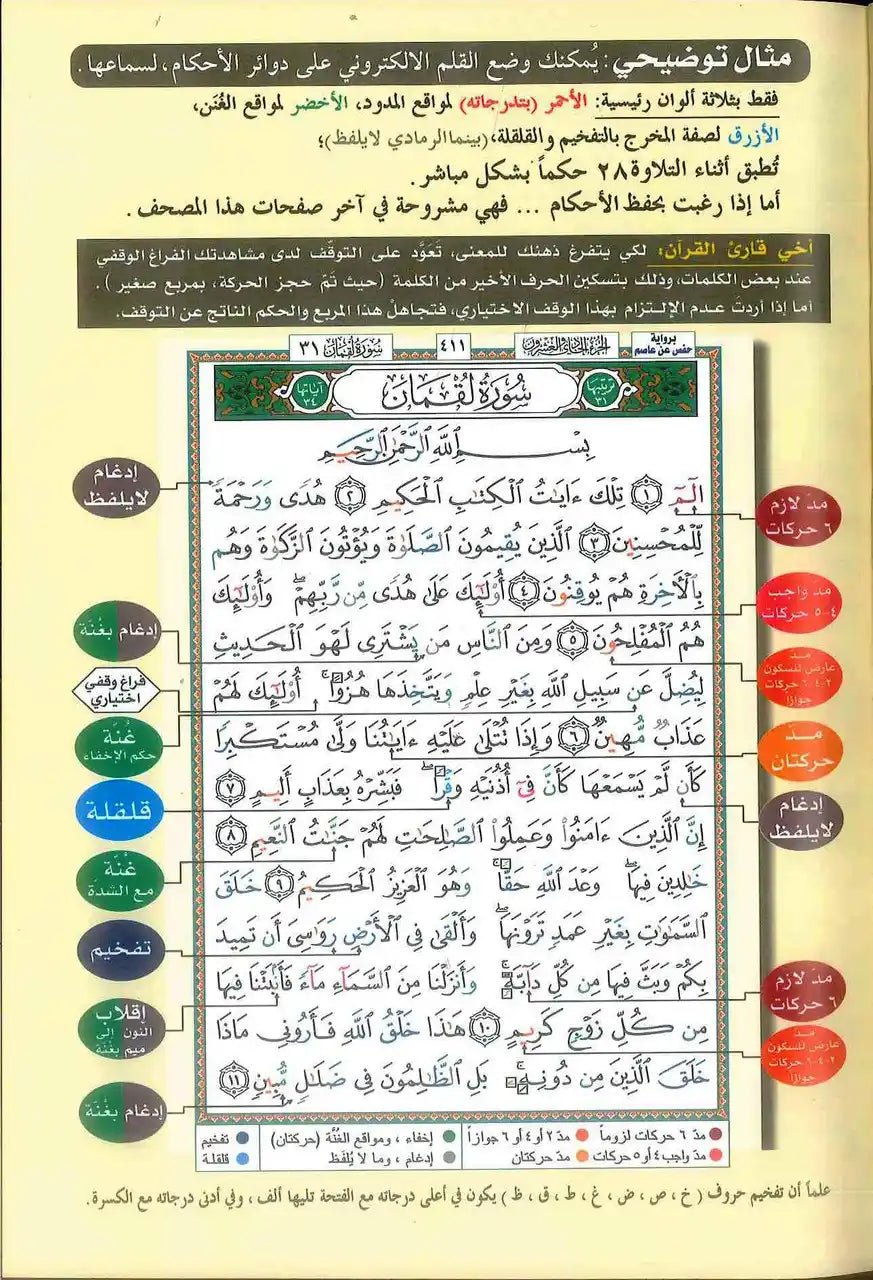 مثال توضيحي: يُمكنك وضع القلم الالكتروني على دوائر الأحكام، لسماعها.
فقط بثلاثة ألوان رئيسية: الأحمر (بتدرجاته) لمواقع المدود، الأخضر لمواقع الغُنَن،
الأزرق لصفة المخرج بالتفخيم والقلقلة، (بينما الرمادي لايلفظ)؛
تُطبق أثناء التلاوة ٢٨ حكماً بشكل مباشر.
أما إذا رغبت بحفظ الأحكام ... فهي مشروحة في آخر صفحات هذا المصحف.
أخي قارئ القرآن: لكي يتفرغ ذهنك للمعنى، تَعَوَّد على التوقّف لدى مشاهدتك الفراغ الوقفي
عند بعض الكلمات، وذلك بتسكين الحرف الأخير من الكلمة (حيث تمّ حجز الحركة، بمربع صغير).
أما إذا أردتَ عدم الإلتزام بهذا الوقف الاختياري، فتجاهلْ هذا المربع والحكم الناتج عن التوقف.
برواية حفص عن عاصم
الجزء الحادي والعشرون
٤١١
سُورَة لُقمَان ٣١
ترتيبها ٣١
سُورَةُ لُقْمَان
آياتها ٣٤
بِسْمِ اللَّهِ الرَّحْمَٰنِ الرَّحِيمِ
الٓمٓ ١ تِلْكَ ءَايَٰتُ الْكِتَٰبِ الْحَكِيمِ ٢ هُدًى وَرَحْمَةً
لِّلْمُحْسِنِينَ ٣ الَّذِينَ يُقِيمُونَ الصَّلَوٰةَ وَيُؤْتُونَ الزَّكَوٰةَ وَهُم
بِالْأَخِرَةِ هُمْ يُوقِنُونَ ٤ أُوْلَٰٓئِكَ عَلَىٰ هُدًى مِّن رَّبِّهِمْ ۖ وَأُوْلَٰٓئِكَ
هُمُ الْمُفْلِحُونَ ٥ وَمِنَ النَّاسِ مَن يَشْتَرِى لَهْوَ الْحَدِيثِ
لِيُضِلَّ عَن سَبِيلِ اللَّهِ بِغَيْرِ عِلْمٍ وَيَتَّخِذَهَا هُزُوًا ۚ أُوْلَٰٓئِكَ لَهُمْ
عَذَابٌ مُّهِينٌ ٦ وَإِذَا تُتْلَىٰ عَلَيْهِ ءَايَٰتُنَا وَلَّىٰ مُسْتَكْبِرًا
كَأَن لَّمْ يَسْمَعْهَا كَأَنَّ فِىٓ أُذُنَيْهِ وَقْرًا ۖ فَبَشِّرْهُ بِعَذَابٍ أَلِيمٍ ٧
إِنَّ الَّذِينَ ءَامَنُوا وَعَمِلُوا الصَّٰلِحَٰتِ لَهُمْ جَنَّٰتُ النَّعِيمِ ٨
خَٰلِدِينَ فِيهَا ۖ وَعْدَ اللَّهِ حَقًّا ۚ وَهُوَ الْعَزِيزُ الْحَكِيمُ ٩ خَلَقَ
السَّمَٰوَٰتِ بِغَيْرِ عَمَدٍ تَرَوْنَهَا ۖ وَأَلْقَىٰ فِى الْأَرْضِ رَوَٰسِىَ أَن تَمِيدَ
بِكُمْ وَبَثَّ فِيهَا مِن كُلِّ دَآبَّةٍ ۚ وَأَنزَلْنَا مِنَ السَّمَآءِ مَآءً فَأَنۢبَتْنَا فِيهَا
مِن كُلِّ زَوْجٍ كَرِيمٍ ١٠ هَٰذَا خَلْقُ اللَّهِ فَأَرُونِى مَاذَا
خَلَقَ الَّذِينَ مِن دُونِهِ ۚ بَلِ الظَّٰلِمُونَ فِى ضَلَٰلٍ مُّبِينٍ ١١
مدّ لازم
٦ حركات
مدّ واجب
٤-٥ حركات
مدّ
عارض للسكون
٢-٤-٦ حركات
جوازاً
مدّ
حركتان
إدغام
لايلفظ
مدّ لازم
٦ حركات
مدّ
عارض للسكون
٢-٤-٦ حركات
جوازاً
إدغام
لايلفظ
إدغام بغُنّة
فراغ وقفي
اختياري
غُنّة
حكم الإخفاء
قلقلة
غُنّة
مع الشدّة
تفخيم
إقلاب
النون إلى
ميم بغُنّة
إدغام بغُنّة
مدّ ٦ حركات لزوماً
مدّ ٢ أو ٤ أو ٦ جوازاً
إخفاء، ومواقع الغُنَّة (حركتان)
تفخيم
مدّ واجب ٤ أو ٥ حركات
مدّ حركتان
إدغام، وما لا يُلفَظ
قلقلة
علماً أن تفخيم حروف (خ، ص، ض، غ، ط، ق، ظ) يكون في أعلى درجاته مع الفتحة تليها ألف، وفي أدنى درجاته مع الكسرة.